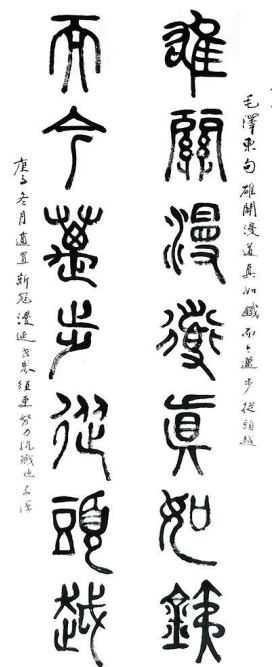 毛澤東句雄關漫道真如鐵而今邁步從頭越
雄關漫道真如鐵
而今邁步從頭越
庚子冬月適置新冠漫延世界須更努力抗戰也